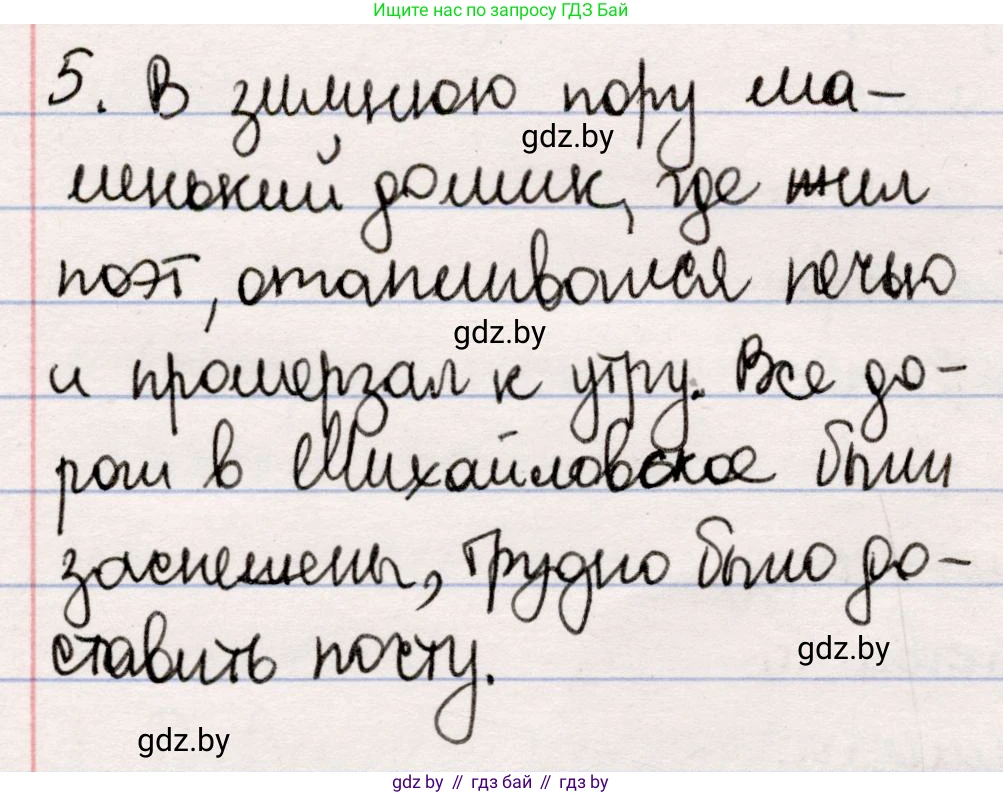 Ищите нас по запросу ГДЗ Бай
5. В зимнюю пору ма-
ленький домик, где жил
gdz.by
поэт, отапливался печью
gdz.by
и промерзал к утру. Все до-
роги в Михайловское были
заснежены, трудно было до-
ставить почту.
gdz.by
gdz.by
gdz.by // гдз бай // гдз by